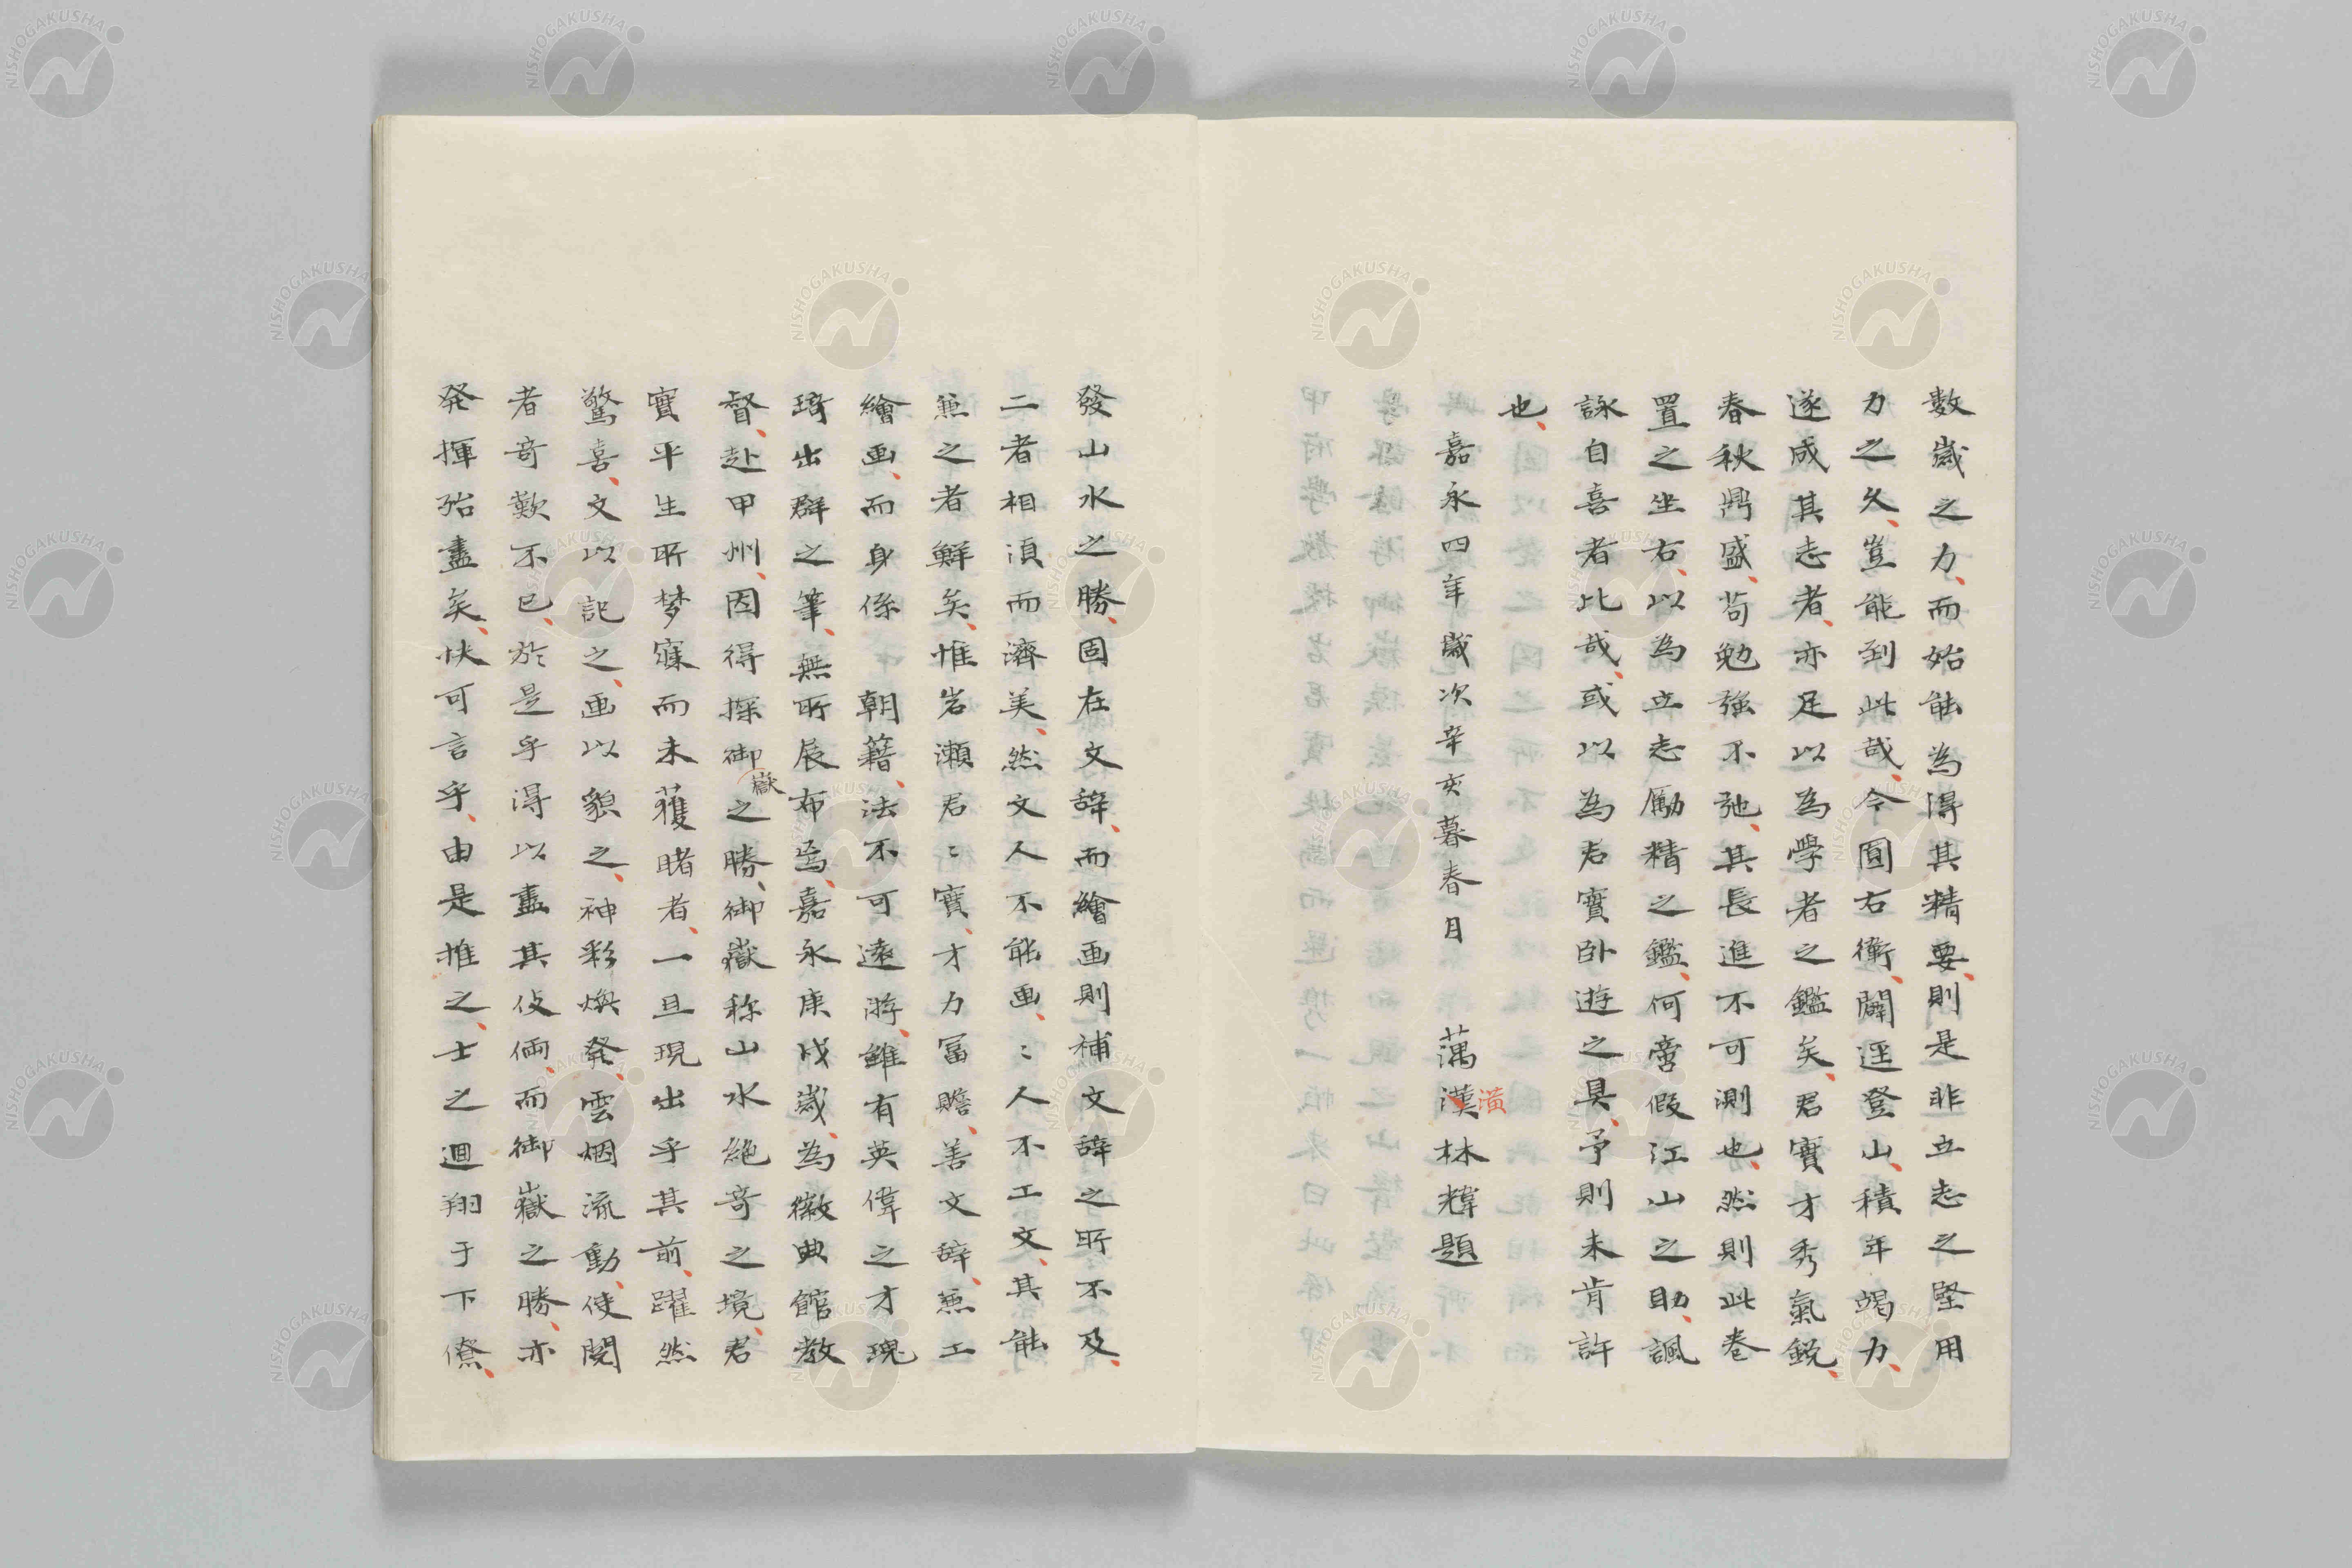 數歲之力、而始能為得其精要、則是非立志之堅用
力之久、豈能到此哉、今圓右衝、闢逕登山、積年竭力、
遂成其志者、亦足以為學者之鑑矣、君實才秀氣銳、
春秋鼎盛、苟勉強不弛、其長進不可測也、然則此卷
置之坐右、以為立志勵精之鑑、何啻假江山之助、諷
詠自喜者比哉、或以為君實臥遊之具、予則未肯許
也、
嘉永四年歲次辛亥暮春月 藕漢林煒題
潢
發山水之勝、固在文辞、而繪画則補文辞之所不及、
二者相湏而濟美、然文人不能画、〻人不工文、其能
兼之者鮮矣、惟岩瀬君〻實、才力冨贍、善文辞、兼工
繪画、而身係 朝籍、法不可遠游、雖有英偉之才瑰
琦出群之筆、無所展布焉、嘉永庚戌歲、為徽典館教
督、赴甲州、因得探御嶽之勝、御嶽称山水絶奇之境、君
實平生所梦寐而未獲睹者、一旦現出乎其前、躍然
驚喜、文以記之、画以貌之、神彩煥発、雲烟流動、使閱
者竒歎不已、於是乎得以盡其伎倆、而御嶽之勝、亦
発揮殆盡矣、快可言乎、由是推之、士之迴翔于下僚、
NISHOGAKUSHA